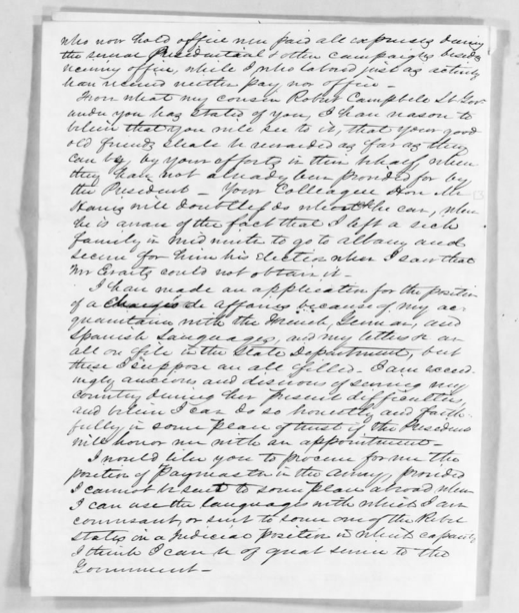 who now hold office were paid all expenses during
the senior Presidential & other campaigns besides
receiving office, while I who labored just as actively
have received neither pay nor office—
From what my cousin Robert Campbell Lt Gov
under you has stated of you, I have reason to
believe that you will see to it, that your good
old friends shall be rewarded as far as they
can be by your efforts in their behalf when
they have not already been provided for by
the President — Your Colleague Hon Mr
Harris will doubtless do what he can, when
he is aware of the fact that I left a sick
family in mid winter to go to Albany and
secure for him his election when I saw that
Mr Evarts could not obtain it—
I have made an application for the position
of a Chargé de Affaires because of my ac
quaintance with the French, German, and
Spanish Languages, and my letters are
all on file in the State Department, but
these I suppose are all filled— I am exceed
ingly anxious and desirous of serving my
country during her present difficulties,
and believe I can do so honestly and faith
fully in some place of trust if the President
will honor me with an appointment—
I would like you to procure for me the
position of Paymaster in the Army, provided
I cannot be sent to some place abroad where
I can use the languages with which I am
conversant, or sent to some one of the Rebel
states in a Judicial position in which capacity
I think I can be of great service to the
Government—